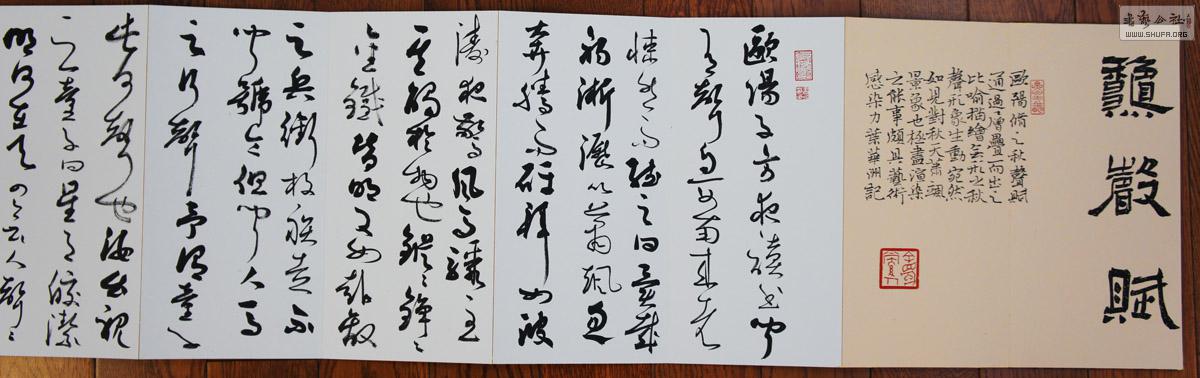 龝聲賦
歐陽脩之秋聲賦
通過層疊而出之
比喻描繪無形之秋
聲形象生動宛然
如見對秋天蕭颯
景象也極盡渲染
之能事頗具藝術
感染力葉華洲記
歐陽子方夜讀書聞
有聲自西南來者
悚然而聽之曰異哉
初淅瀝以蕭颯忽
奔騰而砰湃如波
濤夜驚風雨驟至
其觸於物也鏦〻錚〻
金鐵皆鳴又如赴敵
之兵銜枚疾走不
聞號令但聞人馬
之行聲予謂童子
此何聲也汝出視
之童子曰星月皎潔
明河在天四無人聲〻
WWW.SHUFA.ORG